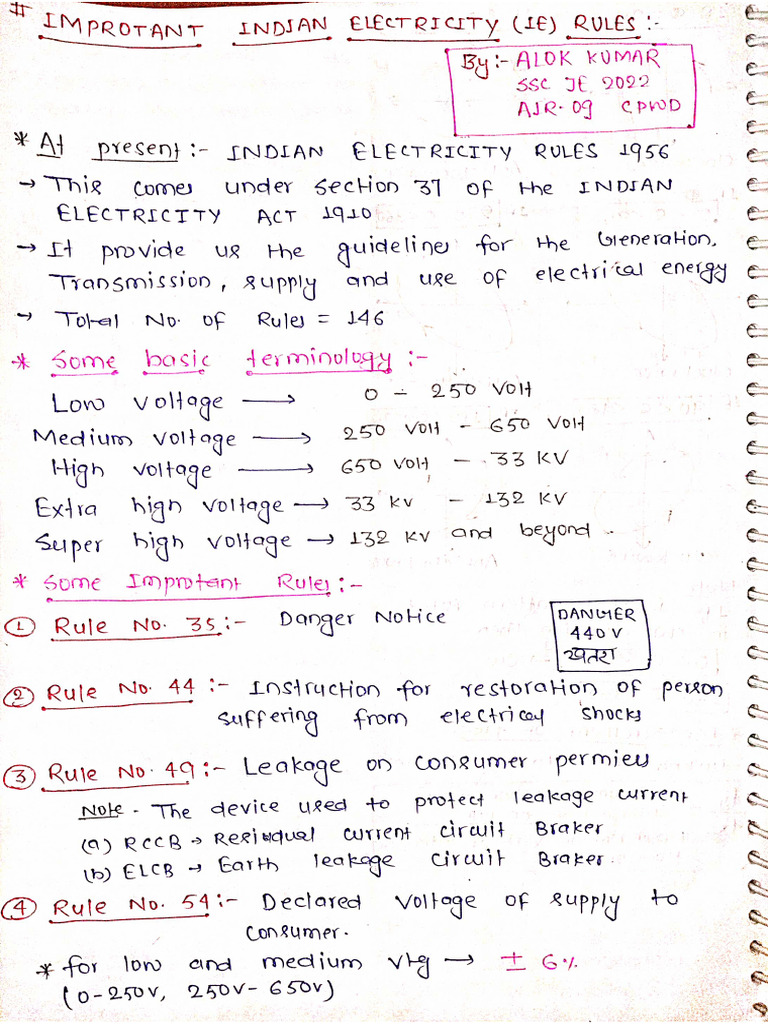 # IMPROTANT INDIAN ELECTRICITY (IE) RULES :-
By :- ALOK KUMAR
SSC JE 2022
AIR-09 CPWD
* At present :- INDIAN ELECTRICITY RULES 1956
→ This comes under section 37 of the INDIAN
ELECTRICITY ACT 1910
→ It provide us the guidelines for the Generation,
Transmission, supply and use of electrical energy
→ Total No. of Rules = 146
* Some basic terminology :-
Low voltage → 0 - 250 VOLT
Medium voltage → 250 VOLT - 650 VOLT
High voltage → 650 VOLT - 33 KV
Extra high voltage → 33 KV - 132 KV
Super high voltage → 132 KV and beyond.
* Some Improtant Rules :-
① Rule No. 35 :- Danger Notice
DANGER
440 V
खतरा
② Rule No. 44 :- Instruction for restoration of person
suffering from electrical shocks
③ Rule No. 49 :- Leakage on consumer permies
Note - The device used to protect leakage current
(a) RCCB → Residual current circuit Braker
(b) ELCB → Earth leakage circuit Braker.
④ Rule No. 54 :- Declared Voltage of supply to
consumer.
* for low and medium vtg → ± 6%
(0-250V, 250V-650V)